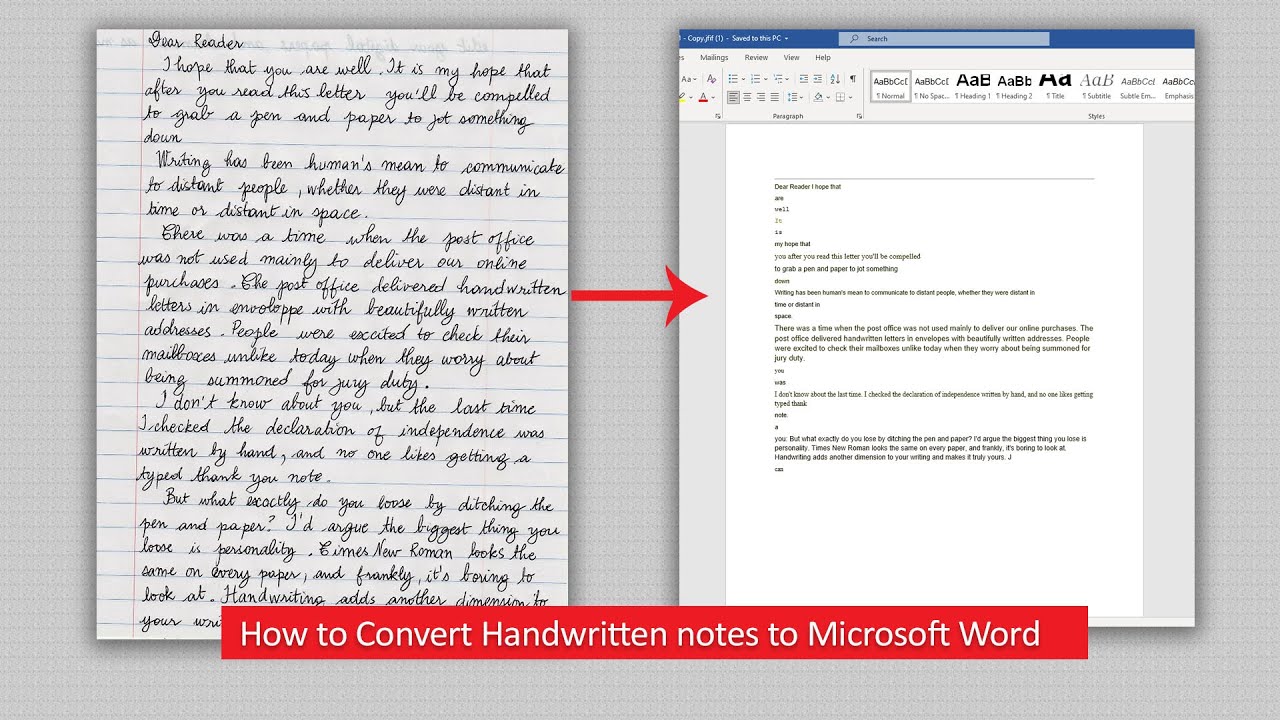 Dear Reader
I hope that you are well. It is my hope that
after you read this letter, you'll be compelled
to grab a pen and paper to jot something
down.
Writing has been human's mean to communicate
to distant people, whether they were distant in
time or distant in space.
There was a time when the post office
was not used mainly to deliver our online
purchases. The post office delivered handwritten
letters in enveloppe with beautifully written
addresses. People were excited to check their
mailboxes unlike today when they worry about
being summoned for jury duty.
I don't know about you but the last time
I checked the declaration of independence was
written by hand, and no one likes getting a
typed thank you note.
But what exactly do you loose by ditching the
pen and paper? I'd argue the biggest thing you
loose is personality. Times New Roman looks the
same on every paper, and frankly, it's boring to
look at. Handwriting adds another dimension to
your
- Copy.jfif (1) - Saved to this PC
Search
Mailings Review View Help
Aa
A
¶
AaBbCcI AaBbCcI AaBb AaBb( Aa AaB AaBbCcI AaBbCcI
¶ Normal ¶ No Spac... ¶ Heading 1 ¶ Heading 2 ¶ Title ¶ Subtitle Subtle Em... Emphasis
Paragraph Styles
Dear Reader I hope that
are
well
It
is
my hope that
you after you read this letter you'll be compelled
to grab a pen and paper to jot something
down
Writing has been human's mean to communicate to distant people, whether they were distant in
time or distant in
space.
There was a time when the post office was not used mainly to deliver our online purchases. The
post office delivered handwritten letters in envelopes with beautifully written addresses. People
were excited to check their mailboxes unlike today when they worry about being summoned for
jury duty.
you
was
I don't know about the last time. I checked the declaration of independence written by hand, and no one likes getting
typed thank
note.
a
you: But what exactly do you lose by ditching the pen and paper? I'd argue the biggest thing you lose is
personality. Times New Roman looks the same on every paper, and frankly, it's boring to look at.
Handwriting adds another dimension to your writing and makes it truly yours. J
can
How to Convert Handwritten notes to Microsoft Word